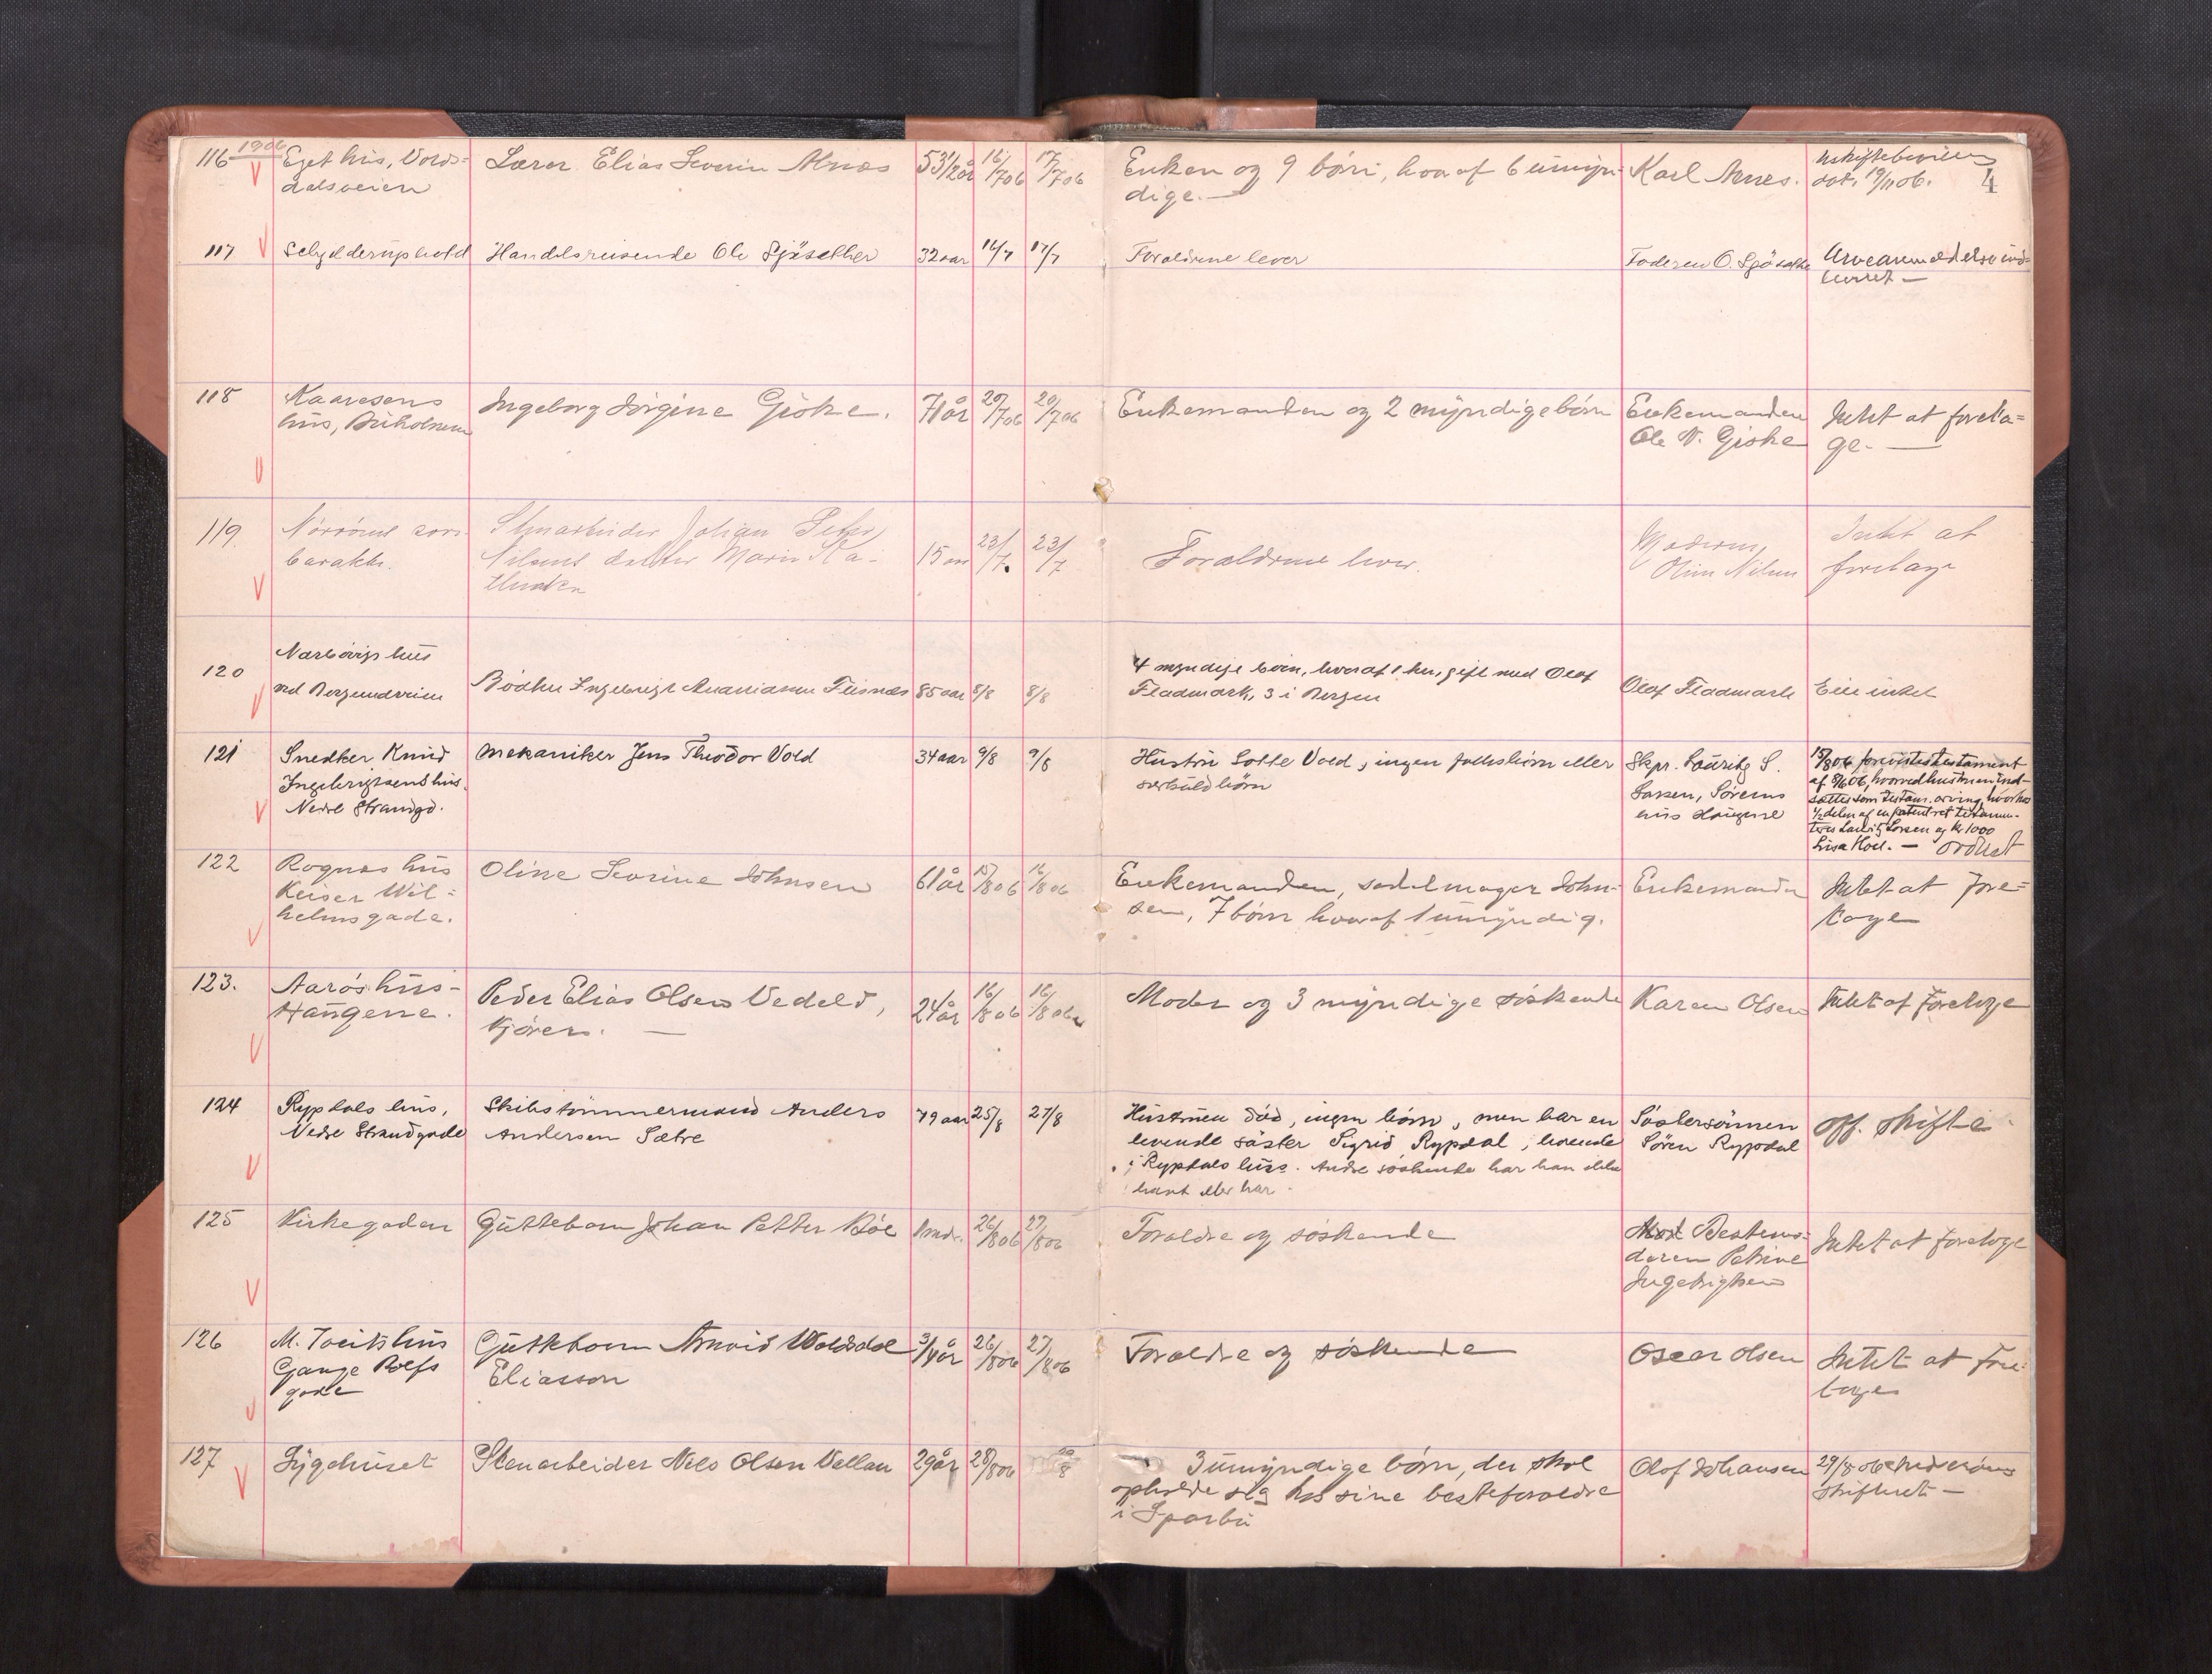 1906
116 Eget hus, Volds-
dalsveien
Lærer Elias Severin Alnæs
53 1/2 år
16/7 06
17/7 06
Enken og 9 börn, hvoraf 6 umyn-
dige. —
Karl Alnæs.
Uskiftebevilling
dat. 19/11 06.
4
117
Schjelderuphold
Handelsreisende Ole Sjösether
32 aar
16/7
17/7
Forældrene lever
Faderen O. Sjösether
Arveanmeldelse ind-
leveret —
118
Kaaresens
hus, Buholmen
Ingeborg Jörgine Giske.
71 år
20/7 06
20/7 06
Enkemanden og 2 myndige börn
Enkemanden
Ole N. Giske
Intet at foreta-
ge. —
119.
barakke.
Stenarbeider Johan Peter
Nilsens datter Marie Ka-
thinka
15 m
23/7.
23/7
Forældrene lever.
Moderen,
Oline Nilsen
Intet at
foretage
120
hus
ved Borgundveien
Bödker Ingebrigt Ananiassen Fiisnæs
85 aar
8/8
8/8
4 myndige börn, hvoraf 1 her, gift med Olaf
Fladmark, 3 i Bergen
Olaf Fladmark
Eier intet
121
Snedker Knud
Ingebrigtsens hus.
Nedre Strandgd.
Mekaniker Jens Theodor Vold
34 aar
9/8
9/8
Hustru Lotte Vold, ingen fællesbörn eller
særkuldbörn
Skpr. Lauritz S.
Larsen, Sörens
hus Haugene
15/8 06 forevistes testament
af 8/6 06, hvorved hustruen ind-
sættes som testam. arving, hvorhos
1/2 delen af en patentret testamen-
teres Lauritz Larsen og kr 1000
Lisa Hoel. — ordnet
122
Rognes hus
Keiser Wil-
helmsgade.
Oline Severine Johnsen
61 år
15/8 06
16/8 06
Enkemanden, sadelmager John-
sen, 7 börn hvoraf 1 umyndig.
Enkemanden
Intet at fore-
tage
123.
Aarös hus-
Haugene.
Peder Elias Olsen Vedeld,
kjörer. —
24 år
16/8 06
16/8 06
Moder og 3 myndige söskende
Karen Olsen
Intet at foretage
124
Rypdals hus,
Nedre Strandgade
Skibstömmermand Anders
Andersen Sætre
79 aar
25/8
27/8
Hustruen död, ingen börn, men har en
levende söster Sigrid Rypdal, boende
i Rypdals hus. Andre söskende har han ikke
havt eller har.
Söstersönnen
Sören Rypdal
Off. skifte
125
Kirkegaden
Guttebarn Johan Petter Böe
1 mdr.
26/8 06
27/8 06
Forældre og söskende
Bestemo-
deren Petrine
Ingebrigtsen
Intet at foretage
126
M. Toviks hus
Gange Rolfs
gade
Guttebarn Arnvid Woldsdal
Eliasson
3/4 år
26/8 06
27/8 06
Forældre og söskende
Oscar Olsen
Intet at fore-
tage
127
Sygehuset
Stenarbeider Nils Olsen Vellan
29 år
28/8 06
3 umyndige börn, der skal
opholde sig hos sine besteforældre
i Sparbu
Olof Johansen
29/8 06
skifteret —